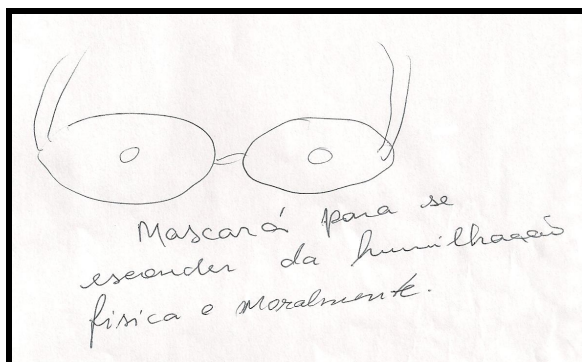 Mascará para se
esconder da humilhação
fisica e moralmente.